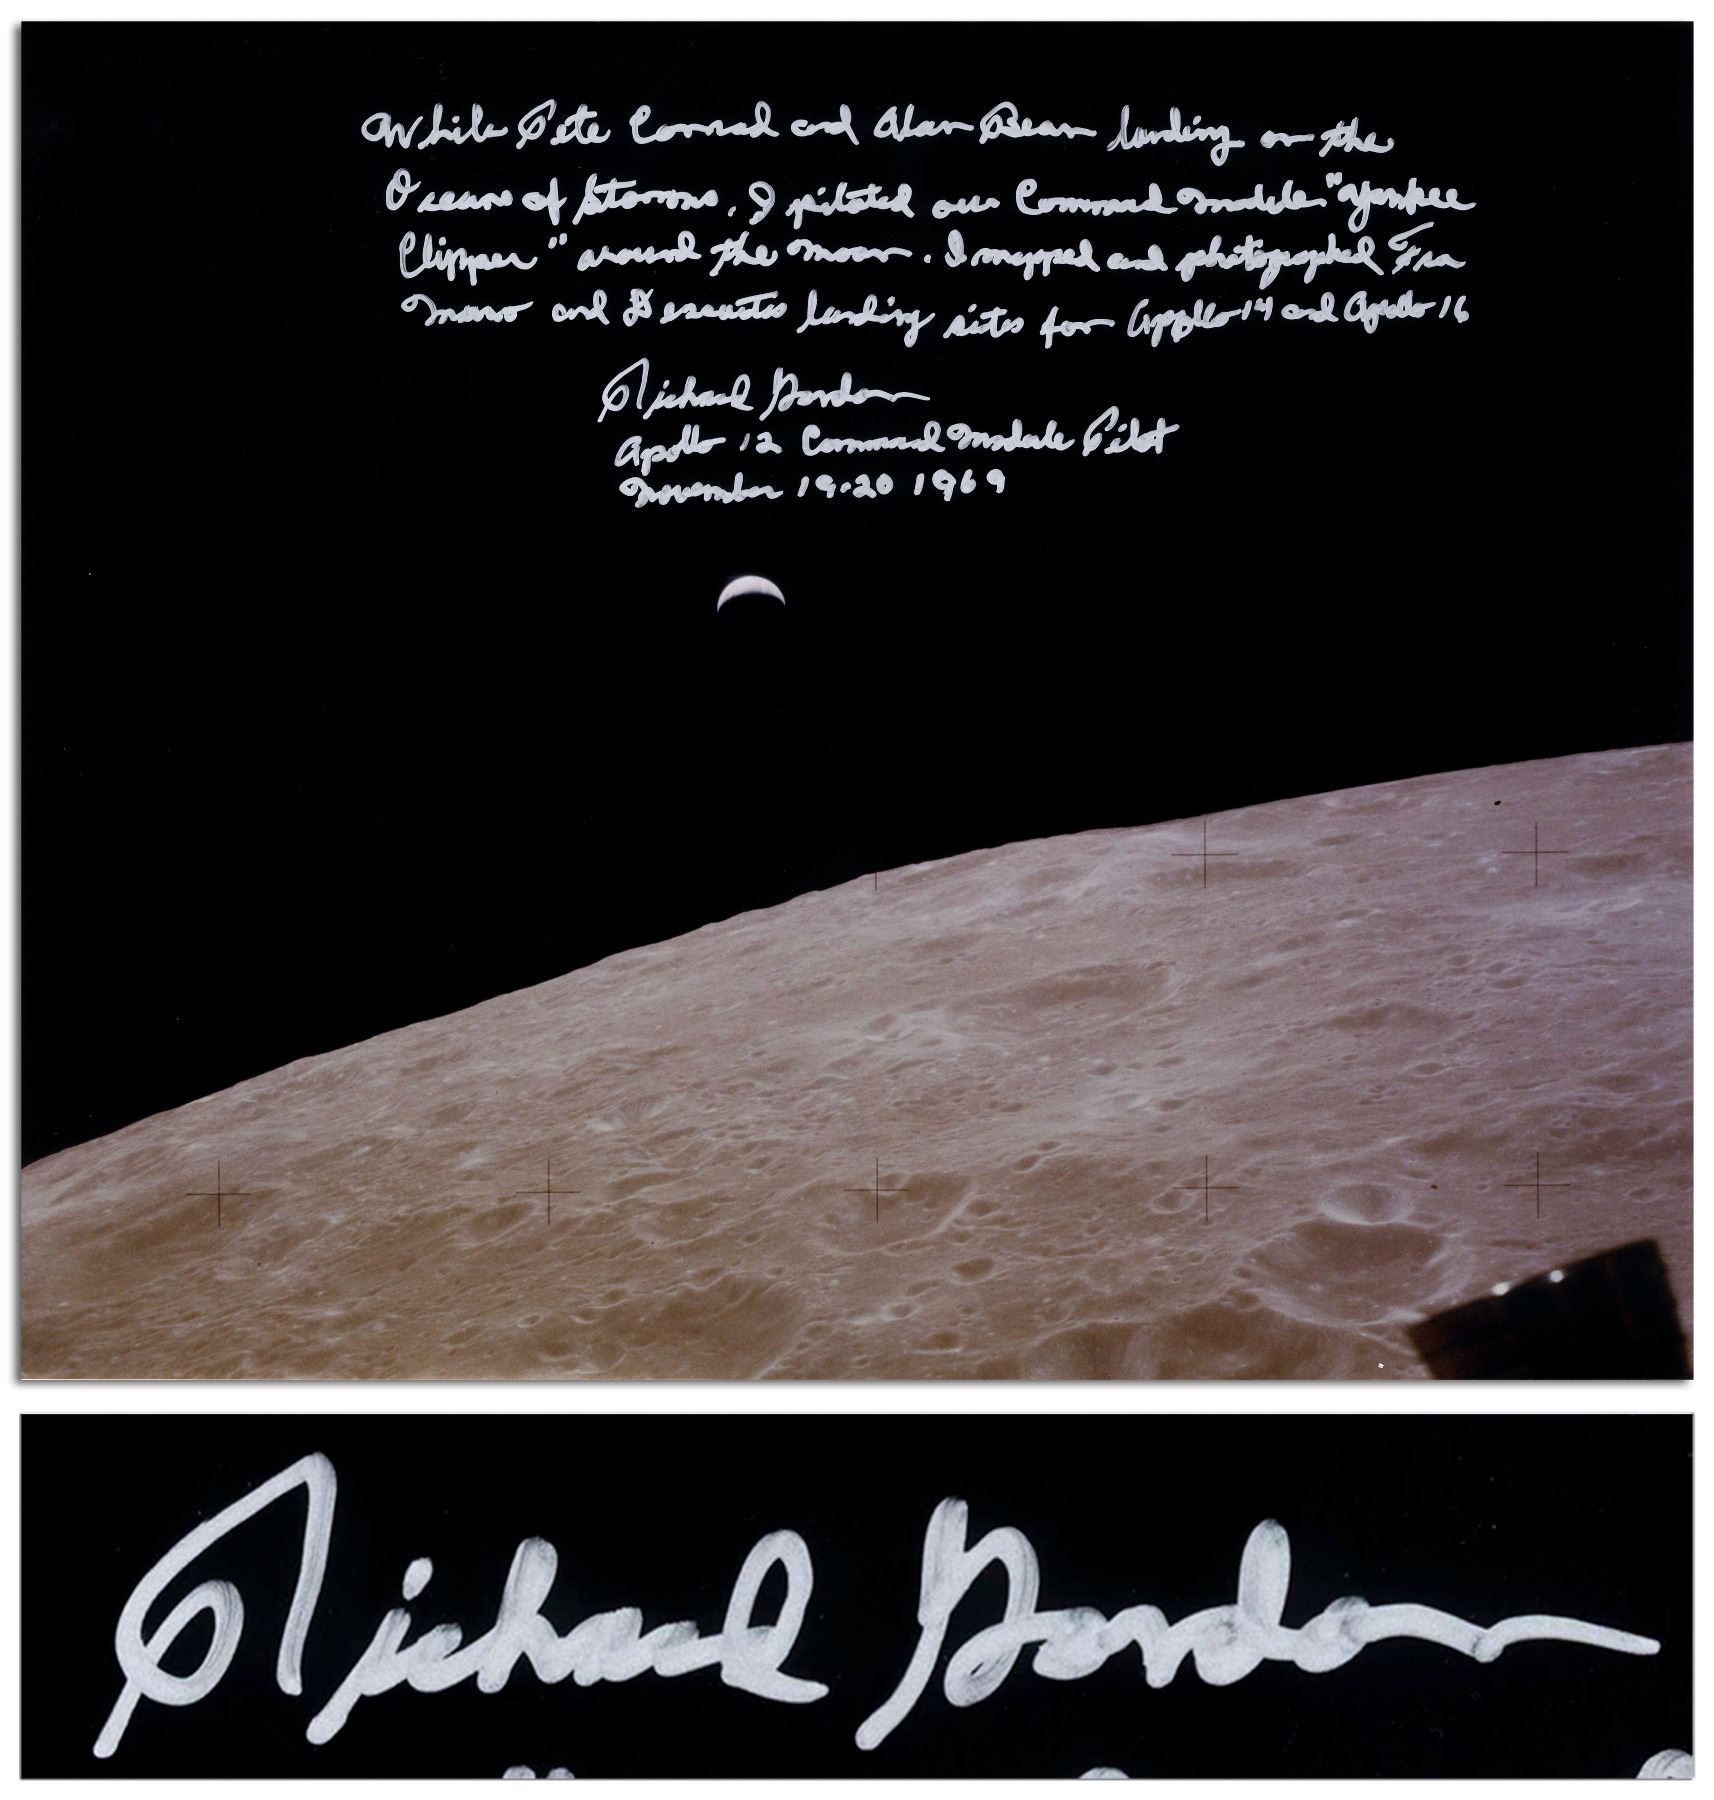 While Pete Conrad and Alan Bean landing on the
Oceans of Storms, I piloted our Command Module "Yankee
Clipper" around the moon. I mapped and photographed Fra
Mauro and Descartes landing sites for Apollo 14 and Apollo 16
Richard Gordon
Apollo 12 Command Module Pilot
November 19-20 1969
Richard Gordon